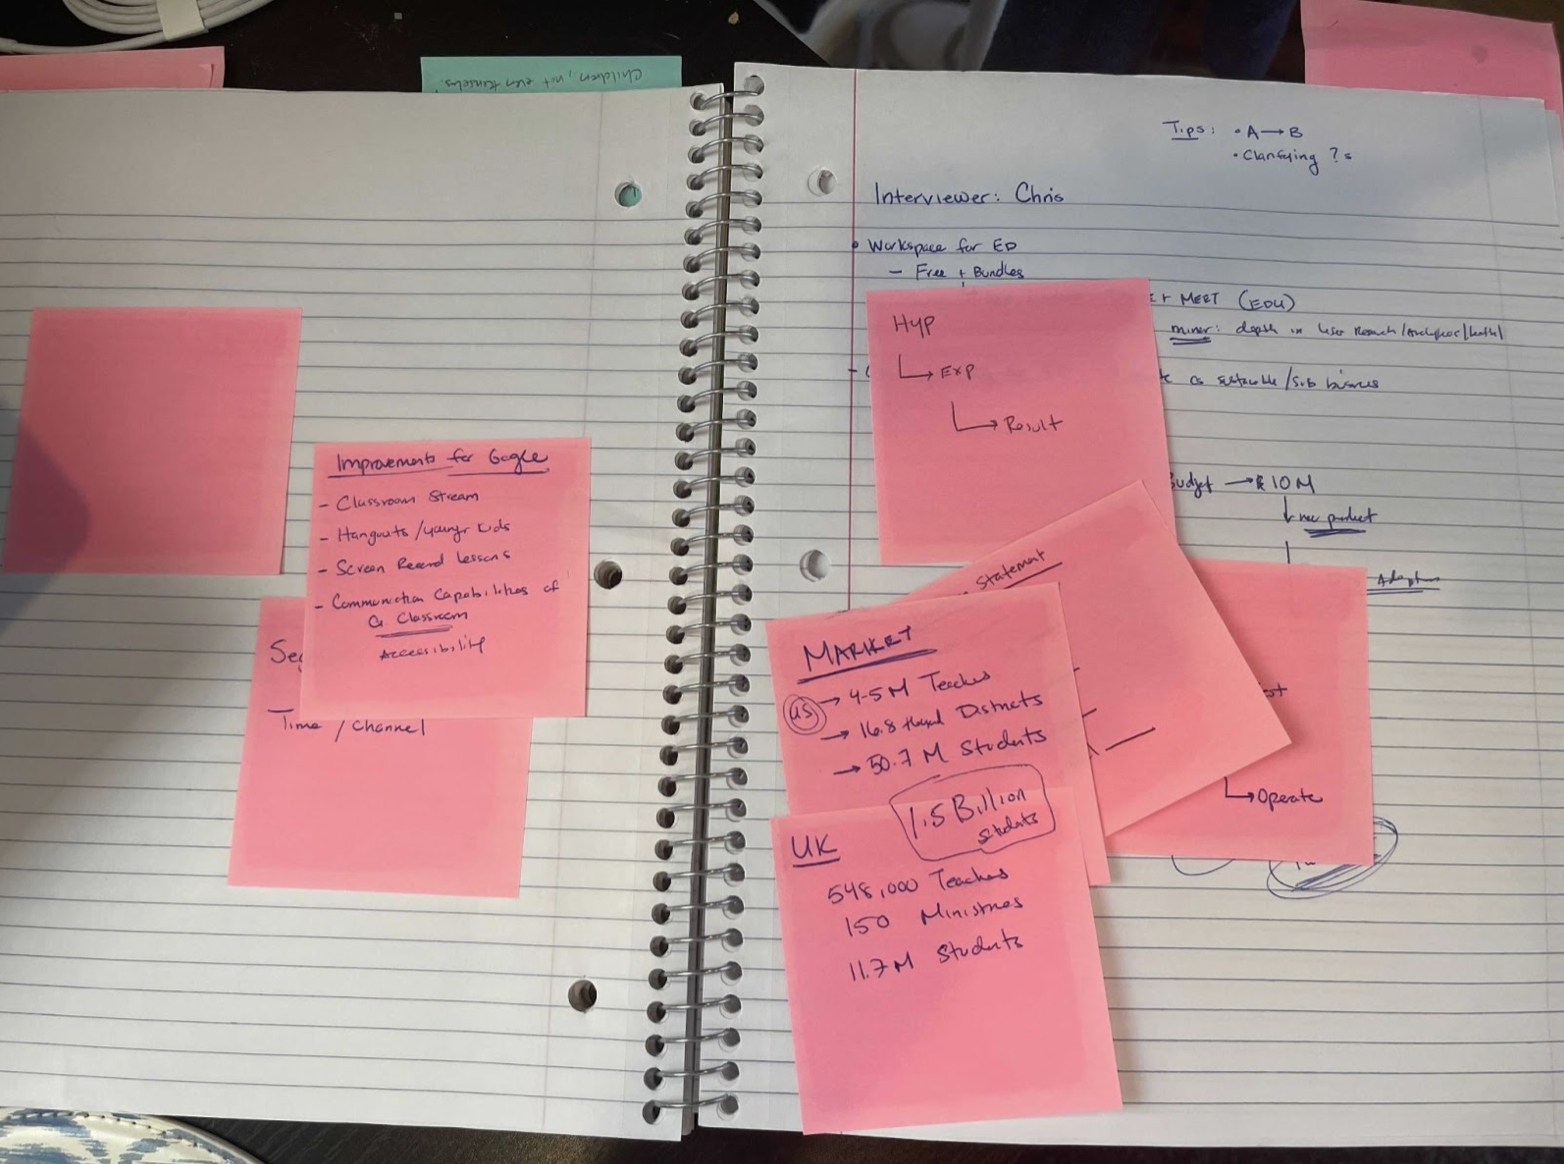 Children, not even
Improvements for Google
- Classroom Stream
- Hangouts /younger kids
- Screen Record lessons
- Communication Capabilities of
G Classroom
Accessibility
Time / Channel
Tips: • A → B
• Clarifying ?s
Interviewer: Chris
• Workspace for ED
- Free + Bundles
MEET (EDU)
minor: depth in User Research/
/Sub business
Hyp
Exp
Result
Budget → $10M
new product
Statement
MARKET
US → 4-5M Teachers
→ 16.8 thousand Districts
→ 50.7 M Students
1.5 Billion
Students
Operate
UK
548,000 Teachers
150 Ministries
11.7M Students